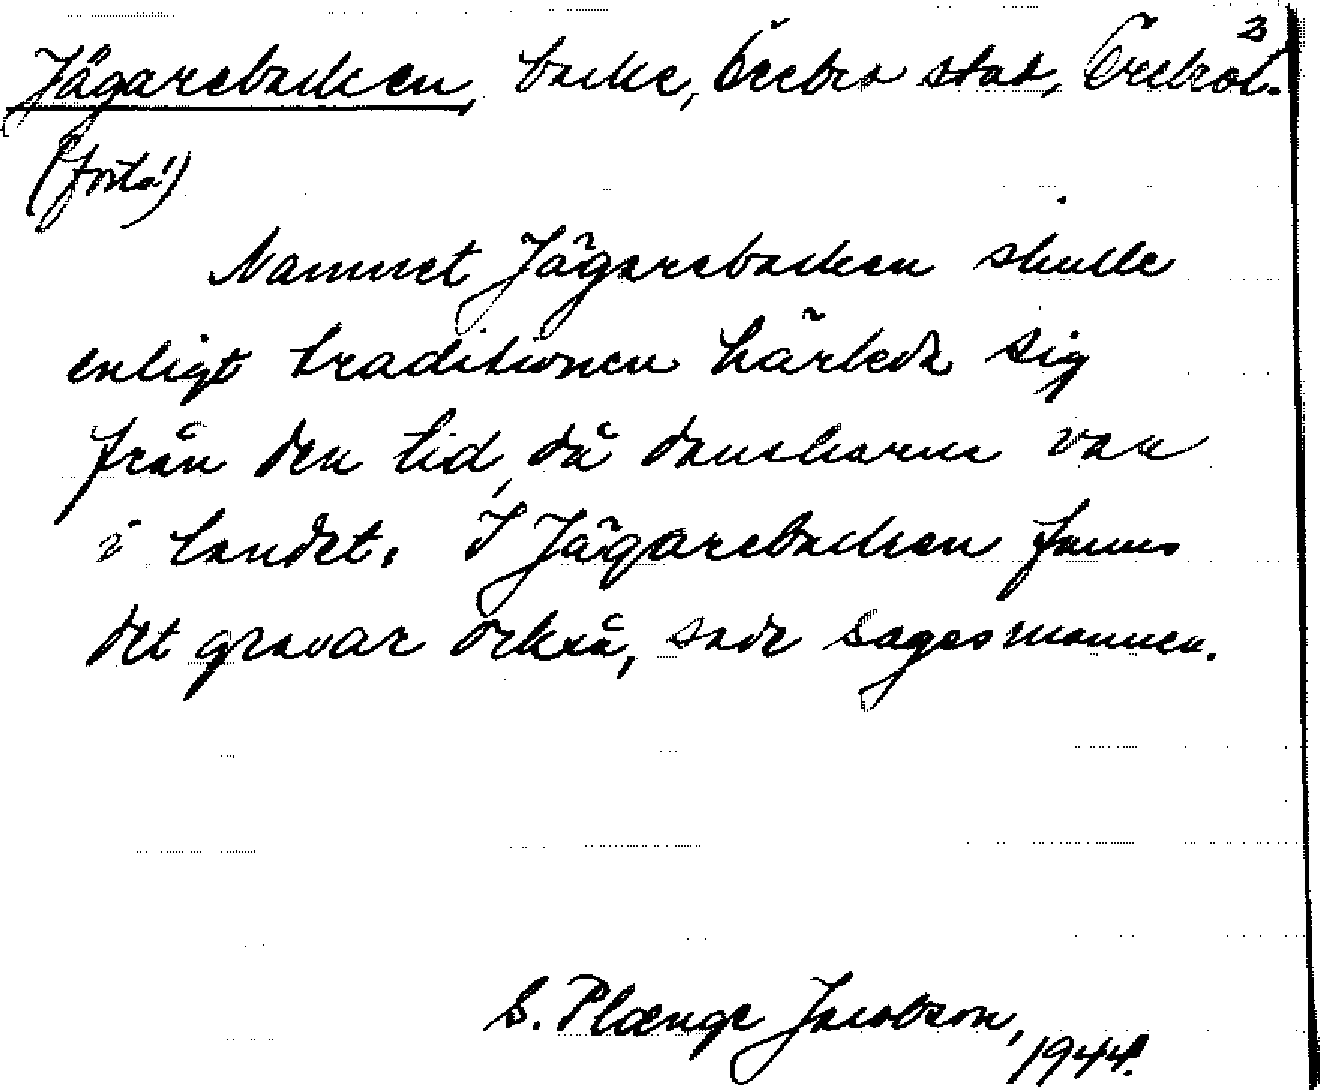 3
Jägarebacken, backe, Örebro stad, Örebro l.
(forts!)
Namnet Jägarebacken skulle
enligt traditionen härleda sig
från den tid, då danskarne voro
i landet. I Jägarebacken fanns
det gravar också, sade sagesmannen.
S. Plænge Jacobson,
1944.